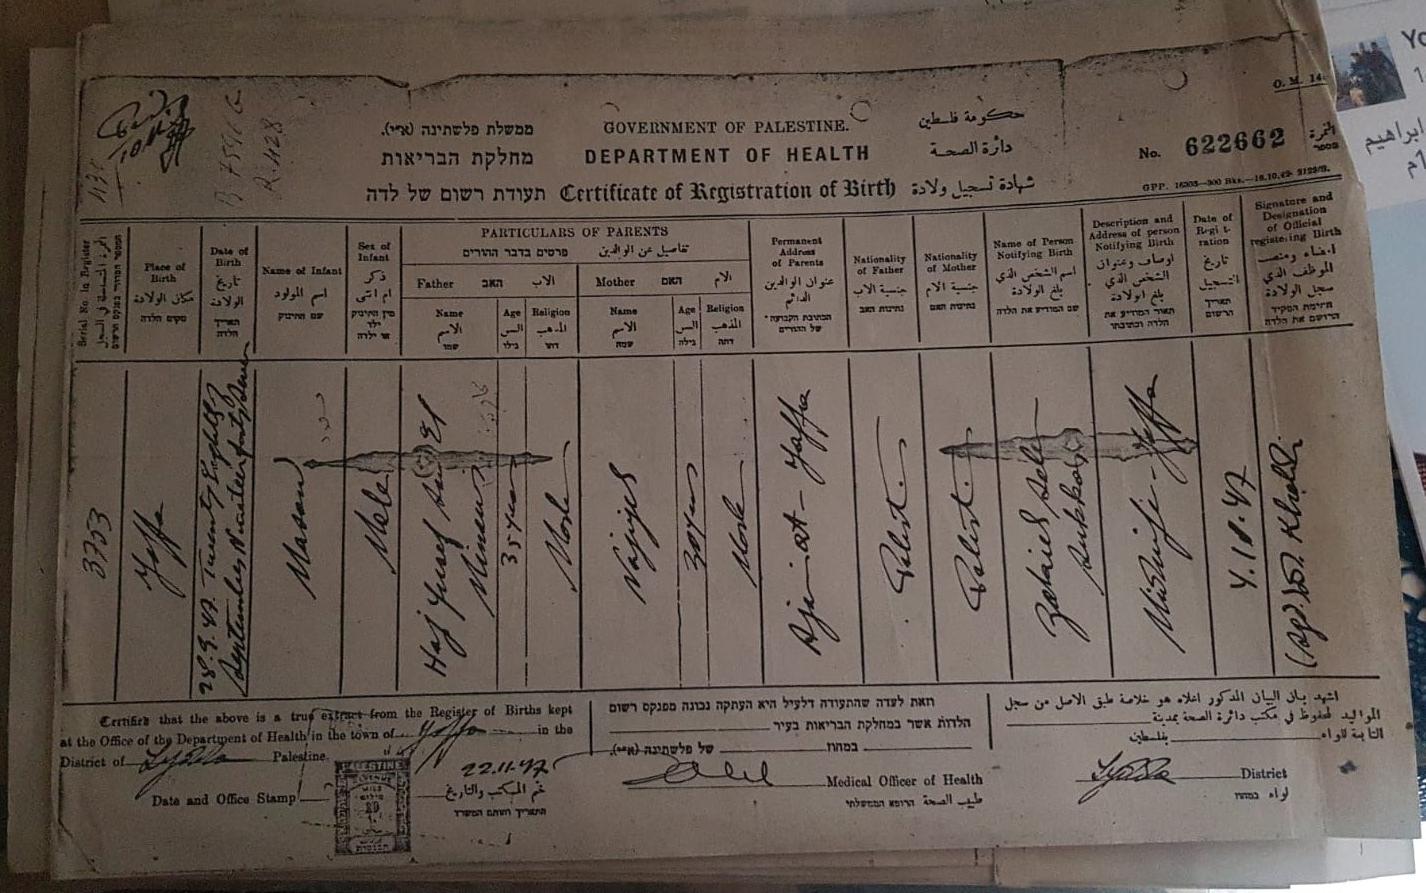 O. M. 14
GOVERNMENT OF PALESTINE.
ממשלת פלשתינה (א״י).
حكومة فلسطين
DEPARTMENT OF HEALTH
מחלקת הבריאות
دائرة الصحة
No. 622662
النمرة
מספר
Certificate of Registration of Birth
תעודת רשום של לדה
شهادة تسجيل ولادة
R. 428
Serial No. in Register
Place of Birth
مكان الولادة
מקום הלדה
Date of Birth
تاريخ الولادة
תאריך הלדה
Name of Infant
اسم المولود
שם התינוק
Sex of Infant
ذكر ام انثى
מין התינוק ילד או ילדה
PARTICULARS OF PARENTS
פרטים בדבר ההורים
تفاصيل عن الوالدين
Father האב الاب
Mother האם الام
Name الاسم שמו
Age السن גילו
Religion المذهب דתו
Name الاسم שמה
Age السن גילה
Religion المذهب דתה
Permanent Address of Parents
عنوان الوالدين الدائم
הכתובת הקבועה של ההורים
Nationality of Father
جنسية الاب
נתינות האב
Nationality of Mother
جنسية الام
נתינות האם
Name of Person Notifying Birth
اسم الشخص الذي بلغ الولادة
שם המודיע את הלדה
Description and Address of person Notifying Birth
اوصاف وعنوان الشخص الذي بلغ الولادة
תאור המודיע את הלדה וכתובתו
Date of Regist-ration
تاريخ التسجيل
תאריך הרשום
Signature and Designation of Official registering Birth
امضاء ومنصب الموظف الذي سجل الولادة
חתימת הפקיד הרושם את הלדה
3753
Jaffa
28.9.47. Twenty Eighth September Nineteen forty Seven
Hassan
Male
Haj Yusef
35 years
Moslem
Najiyeh
30 years
Moslem
Ajami Qt - Jaffa
Palest.
Palest.
Midwife - Jaffa
4.10.47
Certified that the above is a true extract from the Register of Births kept
at the Office of the Department of Health in the town of Jaffa in the
District of Lydda Palestine.
Date and Office Stamp
22.11.47
ختم المكتب والتاريخ
התאריך וחותם המשרד
PALESTINE
REVENUE
וזאת לעדה שהתעודה דלעיל היא העתקה נכונה מפנקס רשום
הלדות אשר במחלקת הבריאות בעיר
במחוז של פלשתינה (א״י).
Medical Officer of Health
طبيب الصحة הרופא הממשלתי
اشهد بان البيان المذكور اعلاه هو خلاصة طبق الاصل من سجل
المواليد المحفوظ في مكتب دائرة الصحة بمدينة
التابعة للواء بفلسطين
Lydda District
لواء במחוז